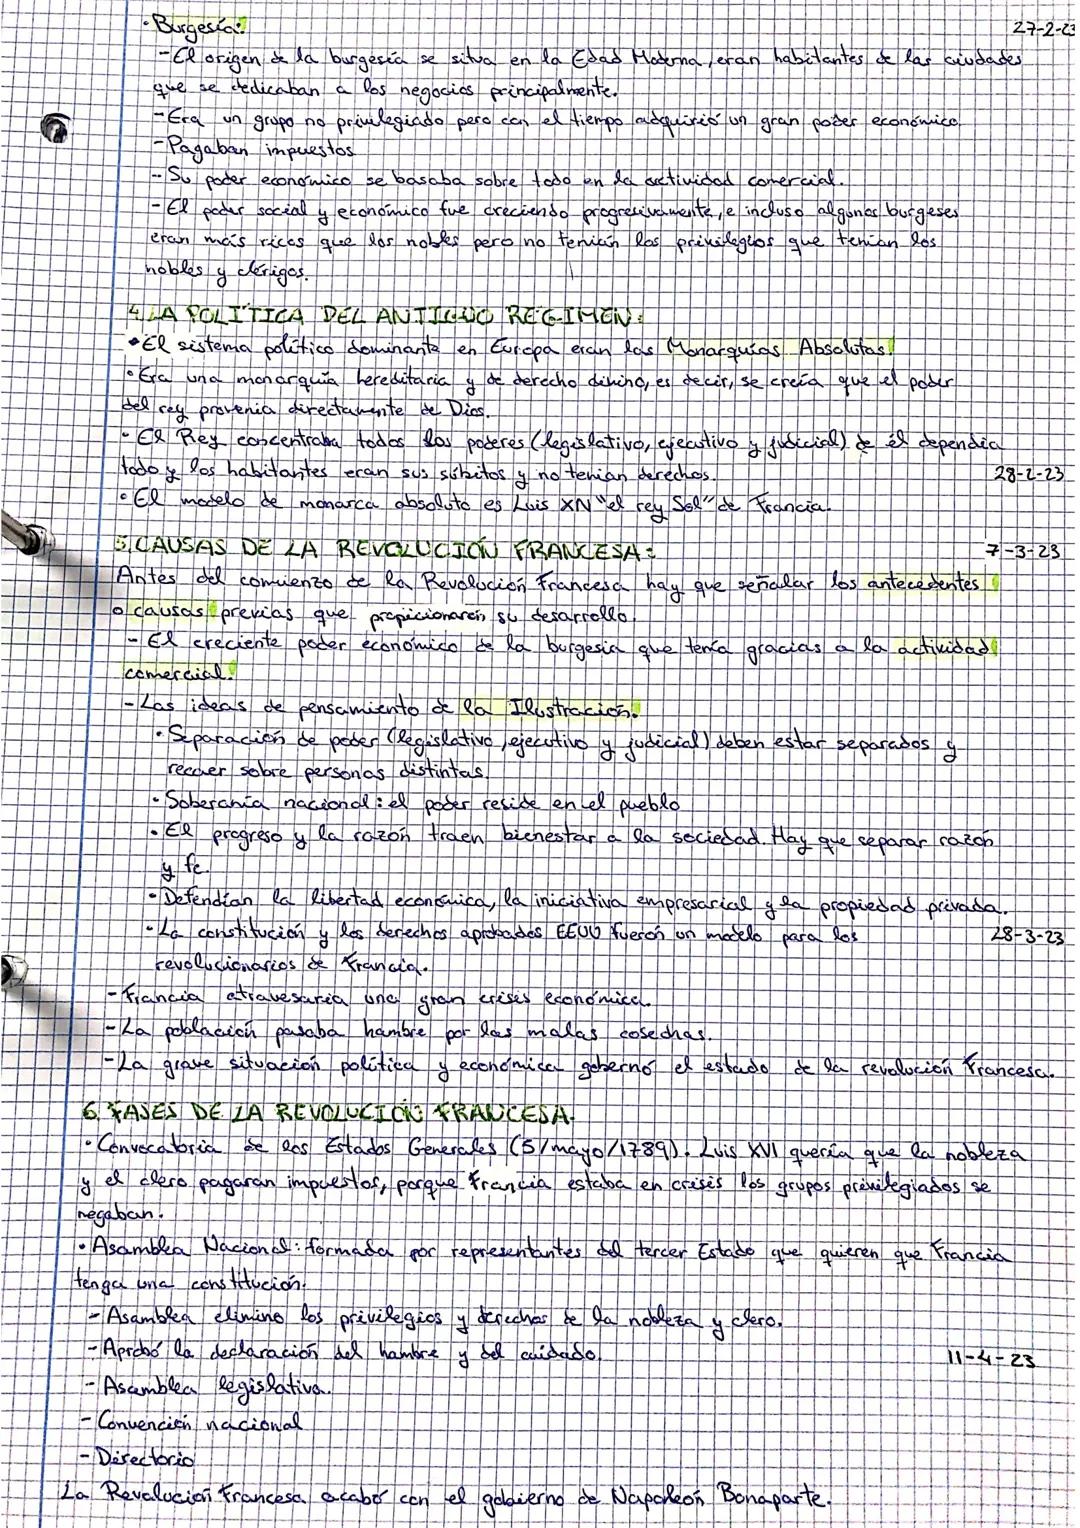 · Burgesía: 27-2-23
- El origen de la burgesía se situa en la Edad Moderna, eran habitantes de las ciudades
que se dedicaban a los negocios principalmente.
- Era un grupo no privilegiado pero con el tiempo adquirió un gran poder económico.
- Pagaban impuestos
- Su poder económico se basaba sobre todo en la actividad comercial.
- El poder social y económico fue creciendo progresivamente, e incluso algunos burgeses
eran más ricos que los nobles pero no tenían los privilegios que tenian los
nobles y clérigos.
4. LA POLÍTICA DEL ANTIGUO REGIMEN:
• El sistema político dominante en Europa eran las Monarquías Absolutas.
• Era una monarquía hereditaria y de derecho divino, es decir, se creía que el poder
del rey provenia directamente de Dios.
• El Rey concentraba todos los poderes (legislativo, ejecutivo y judicial) de él dependía
todo y los habitantes eran sus súbitos y no tenian derechos. 28-2-23
• El modelo de monarca absoluto es Luis XIV "el rey Sol" de Francia.
5. CAUSAS DE LA REVOLUCIÓN FRANCESA: 7-3-23
Antes del comienzo de la Revolución Francesa hay que señalar los antecedentes
o causas previas que propicionarón su desarrollo.
- El creciente poder económico de la burgesia que tenía gracias a la actividad
comercial.
- Las ideas de pensamiento de la Ilustración.
• Separación de poder (legislativo, ejecutivo y judicial) deben estar separados y
recaer sobre personas distintas.
• Soberanía nacional: el poder reside en el pueblo
• El progreso y la razón traen bienestar a la sociedad. Hay que separar razón
y fe.
• Defendían la libertad económica, la iniciativa empresarial y la propiedad privada.
• La constitución y los derechos aprobados EEUU fuerón un modelo para los 28-3-23
revolucionarios de Francia.
- Francia atravesaria una gran crisis económica.
- La población pasaba hambre por las malas cosechas.
- La grave situación política y económica gobernó el estado de la revolución Francesa.
6. FASES DE LA REVOLUCIÓN FRANCESA.
• Convocatoria de los Estados Generales (5/mayo/1789). Luis XVI quería que la nobleza
y el clero pagaran impuestos, porque Francia estaba en crisis los grupos privilegiados se
negaban.
• Asamblea Nacional: formada por representantes del tercer Estado que quieren que Francia
tenga una constitución.
- Asamblea elimino los privilegios y derechos de la nobleza y clero.
- Aprobó la declaración del hombre y del cuidado. 11-4-23
- Asamblea legislativa.
- Convención nacional
- Directorio
La Revolución Francesa acabó con el gobierno de Napoleón Bonaparte.